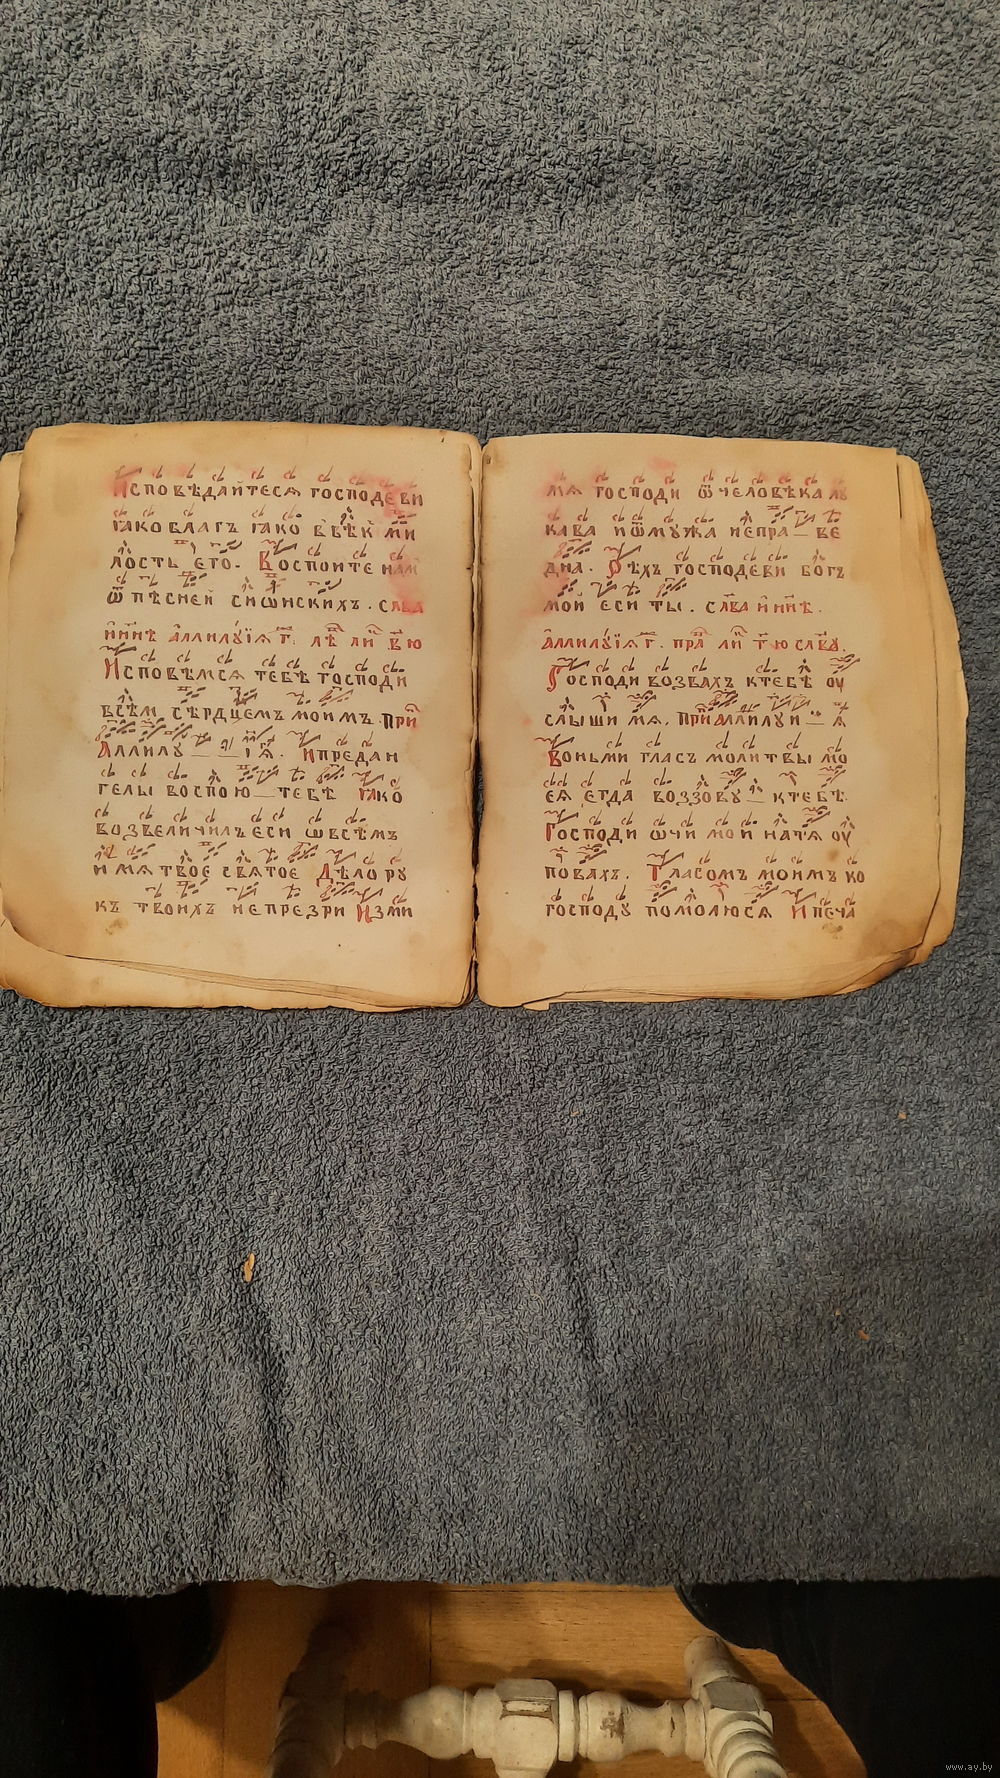 Исповѣдайтесѧ господеви
ꙗко благъ ꙗко ввѣк ми
лость его. Воспоите нам
ѿ пѣсней сиѡнскихъ. слва
и ннѣ аллилуїѧ г҃. лѣ ли в҃ ю
Исповѣмсѧ тебѣ господи
всѣм сердцемъ моимъ. при
Аллилу їѧ. Ипредан
гелы воспою тебѣ ꙗко
возвеличилъ еси ѡвсѣмъ
имѧ твое свѧтое Дѣло ру
къ твоихъ непрезри Изми
мѧ господи ѿчеловѣка лу
кава иѿмужа непра ве
дна. Рѣхъ господеви богъ
мой еси ты. слва и ннѣ.
Аллилуїѧ г҃. пра ли т҃ ю слву.
Господи возвахъ ктебѣ оу
слыши мѧ. при аллилуи ѧ
Воньми гласъ молитвы мо
еѧ егда воззову ктебѣ.
Господи ѡчи мои натѧ оу
повахъ. Гласомъ моимъ ко
господу помолюсѧ Ипеча
www.ay.by